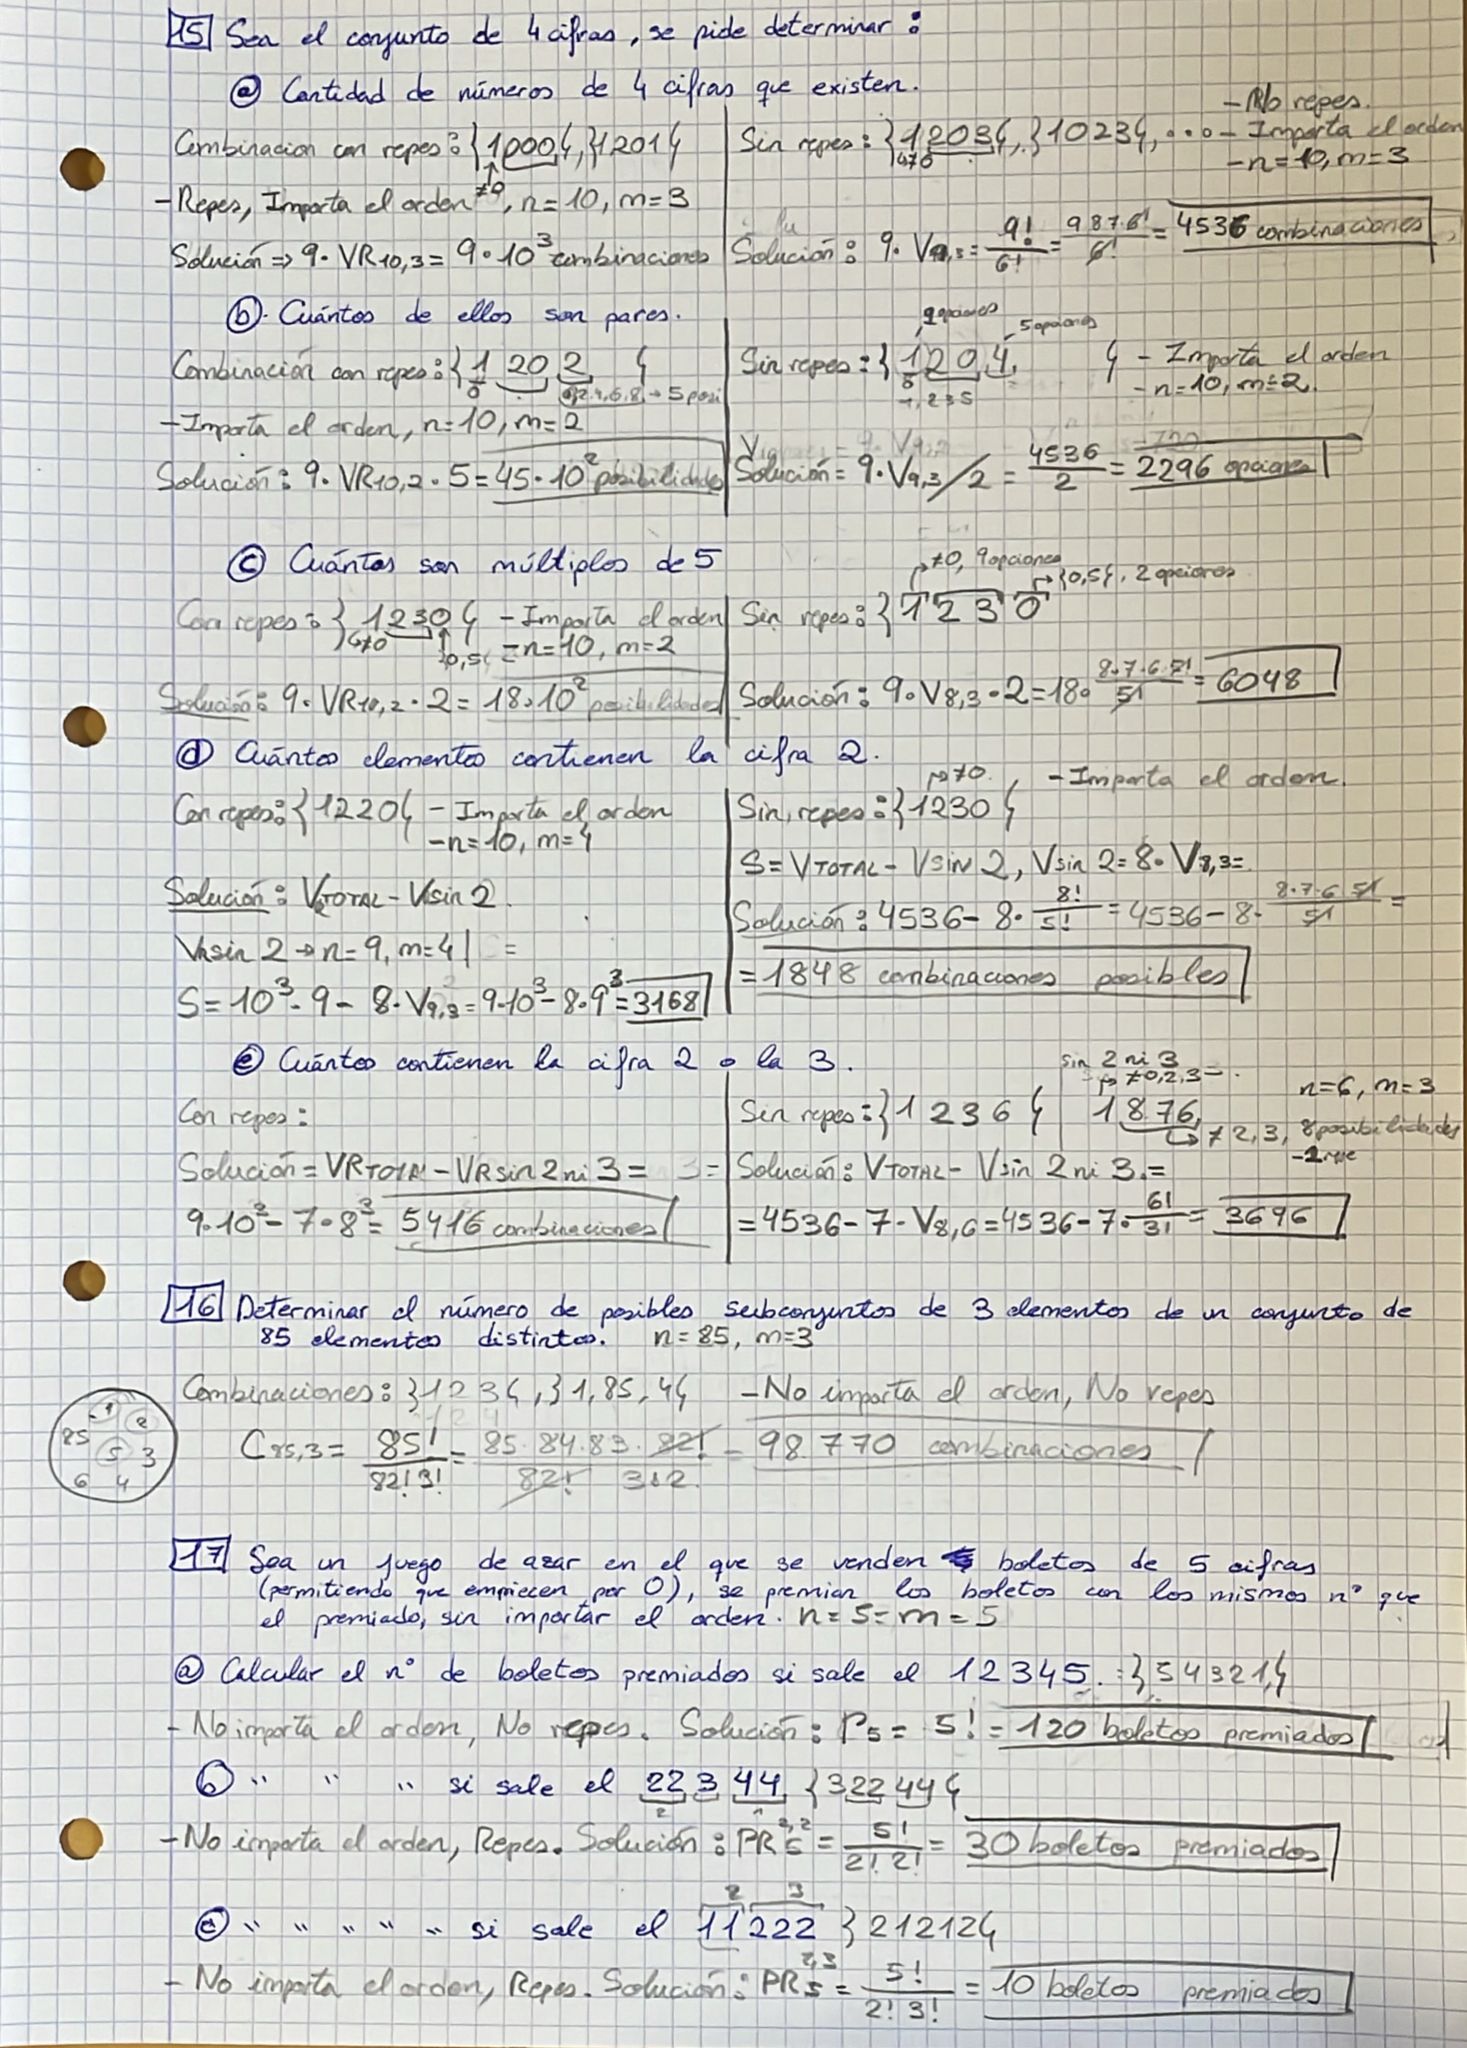 15 Sea el conjunto de 4 cifras, se pide determinar :
a) Cantidad de números de 4 cifras que existen.
Combinacion con repes: {1000}, {1201}
≠0
- Repes, Importa el orden, n=10, m=3
Solución ⇒ 9·VR10,3 = 9·10³ combinaciones
Sin repes: {1203}, {1023}, ...
≠0
- No repes.
- Importa el orden
- n=10, m=3
Solución: 9·V9,3 = 9!/6! = 987·6!/6! = 4536 combinaciones
b) Cuántos de ellos son pares.
Combinación con repes: {1 20 2 }
0,2,4,6,8 → 5 posi
- Importa el orden, n=10, m=2
Solución: 9·VR10,2·5 = 45·10² posibilidades
9 opciones
5 opciones
Sin repes: {1 20 4, } - Importa el orden
- n=10, m=2.
Solución = 9·V9,3/2 = 4536/2 = 2296 opciones
c) Cuántos son múltiplos de 5
Con repes: {1230} - Importa el orden
≠0 {0,5} - n=10, m=2
Solución: 9·VR10,2·2 = 18·10² posibilidades
≠0, 9 opciones
{0,5}, 2 opciones
Sin repes: {1 2 3 0
Solución: 9·V8,3·2 = 18· 8·7·6·5!/5! = 6048
d) Cuántos elementos contienen la cifra 2.
Con repes: {1220} - Importa el orden
- n=10, m=4
Solución: VTOTAL - Vsin 2
VRsin 2 → n=9, m=4 =
S = 10³·9 - 8·V9,3 = 9·10³ - 8·9³ = 3168
≠0. , - Importa el orden.
Sin repes: {1230}
S = VTOTAL - VSIN 2, Vsin 2 = 8·V8,3 =
Solución: 4536 - 8· 8!/5! = 4536 - 8· 8·7·6·5!/5! =
= 1848 combinaciones posibles
e) Cuántos contienen la cifra 2 o la 3.
Con repes:
Solución = VRTOTAL - VRsin 2 ni 3 =
9·10³ - 7·8³ = 5416 combinaciones
sin 2 ni 3
≠0,2,3
Sin repes: {1 2 3 6} 1 8 7 6,
n=6, m=3
≠2,3, 8 posibilidades
Solución: VTOTAL - Vsin 2 ni 3. =
= 4536 - 7·V8,6 = 4536 - 7· 6!/3! = 3696
16 Determinar el número de posibles subconjuntos de 3 elementos de un conjunto de
85 elementos distintos. n=85, m=3
Combinaciones: {1 2 3}, {1, 85, 4} - No importa el orden, No repes
1 2 85 5 3 6 4
C85,3 = 85!/82!3! = 85·84·83·82!/82! 3·2 = 98.770 combinaciones
17 Sea un juego de azar en el que se venden boletos de 5 cifras
(permitiendo que empiecen por 0), se premian los boletos con los mismos nº que
el premiado, sin importar el orden. n=5=m=5
a) Calcular el nº de boletos premiados si sale el 12345. = {54321,}
- No importa el orden, No repes. Solución: P5 = 5! = 120 boletos premiados
b) " " " si sale el 22 3 44 {3 22 44}
- No importa el orden, Repes. Solución: PR5 2,2 = 5!/2! 2! = 30 boletos premiados
2 3
c) " " " " " si sale el 11222 {21212}
- No importa el orden, Repes. Solución: PR5 2,3 = 5!/2! 3! = 10 boletos premiados